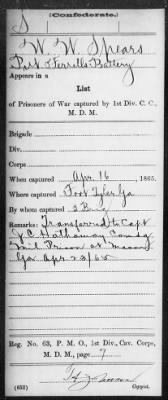 S
(Confederate.)
W. W. Spears
Part. Ferrells Battery
Appears in a
List
of Prisoners of War captured by 1st Div. C. C.,
M. D. M.
Brigade
Div.
Corps
When captured Apr. 16, 1865.
Where captured Fort Tyler Ga
By whom captured 2 Brig
Remarks: Transferred to Capt
Hathaway Comdg
Mil Prison at Macon
Ga Apr 23/65
Reg. No. 63, P. M. O., 1st Div., Cav. Corps,
M. D. M., page 7
(653)
Copyist.